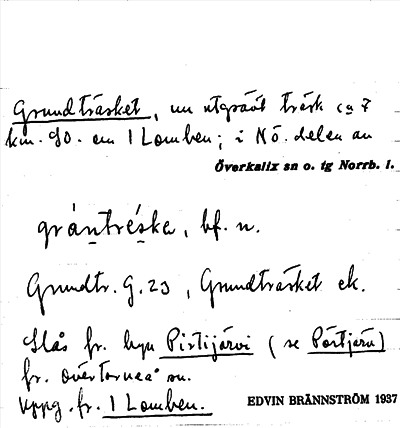 Grundträsket, en utgrävt träsk ca 7
km. SO. om 1 Lomben; i NÖ. delen av
Överkalix sn o. tg Norrb. l.
grántrèska, bf. n.
Grundtr. G. 23, Grundträsket ek.
Slås fr. byn Pirtijärvi (se Pörtjärv)
fr. Övertorneå sn.
Uppg. fr. 1 Lomben.
EDVIN BRÄNNSTRÖM 1937